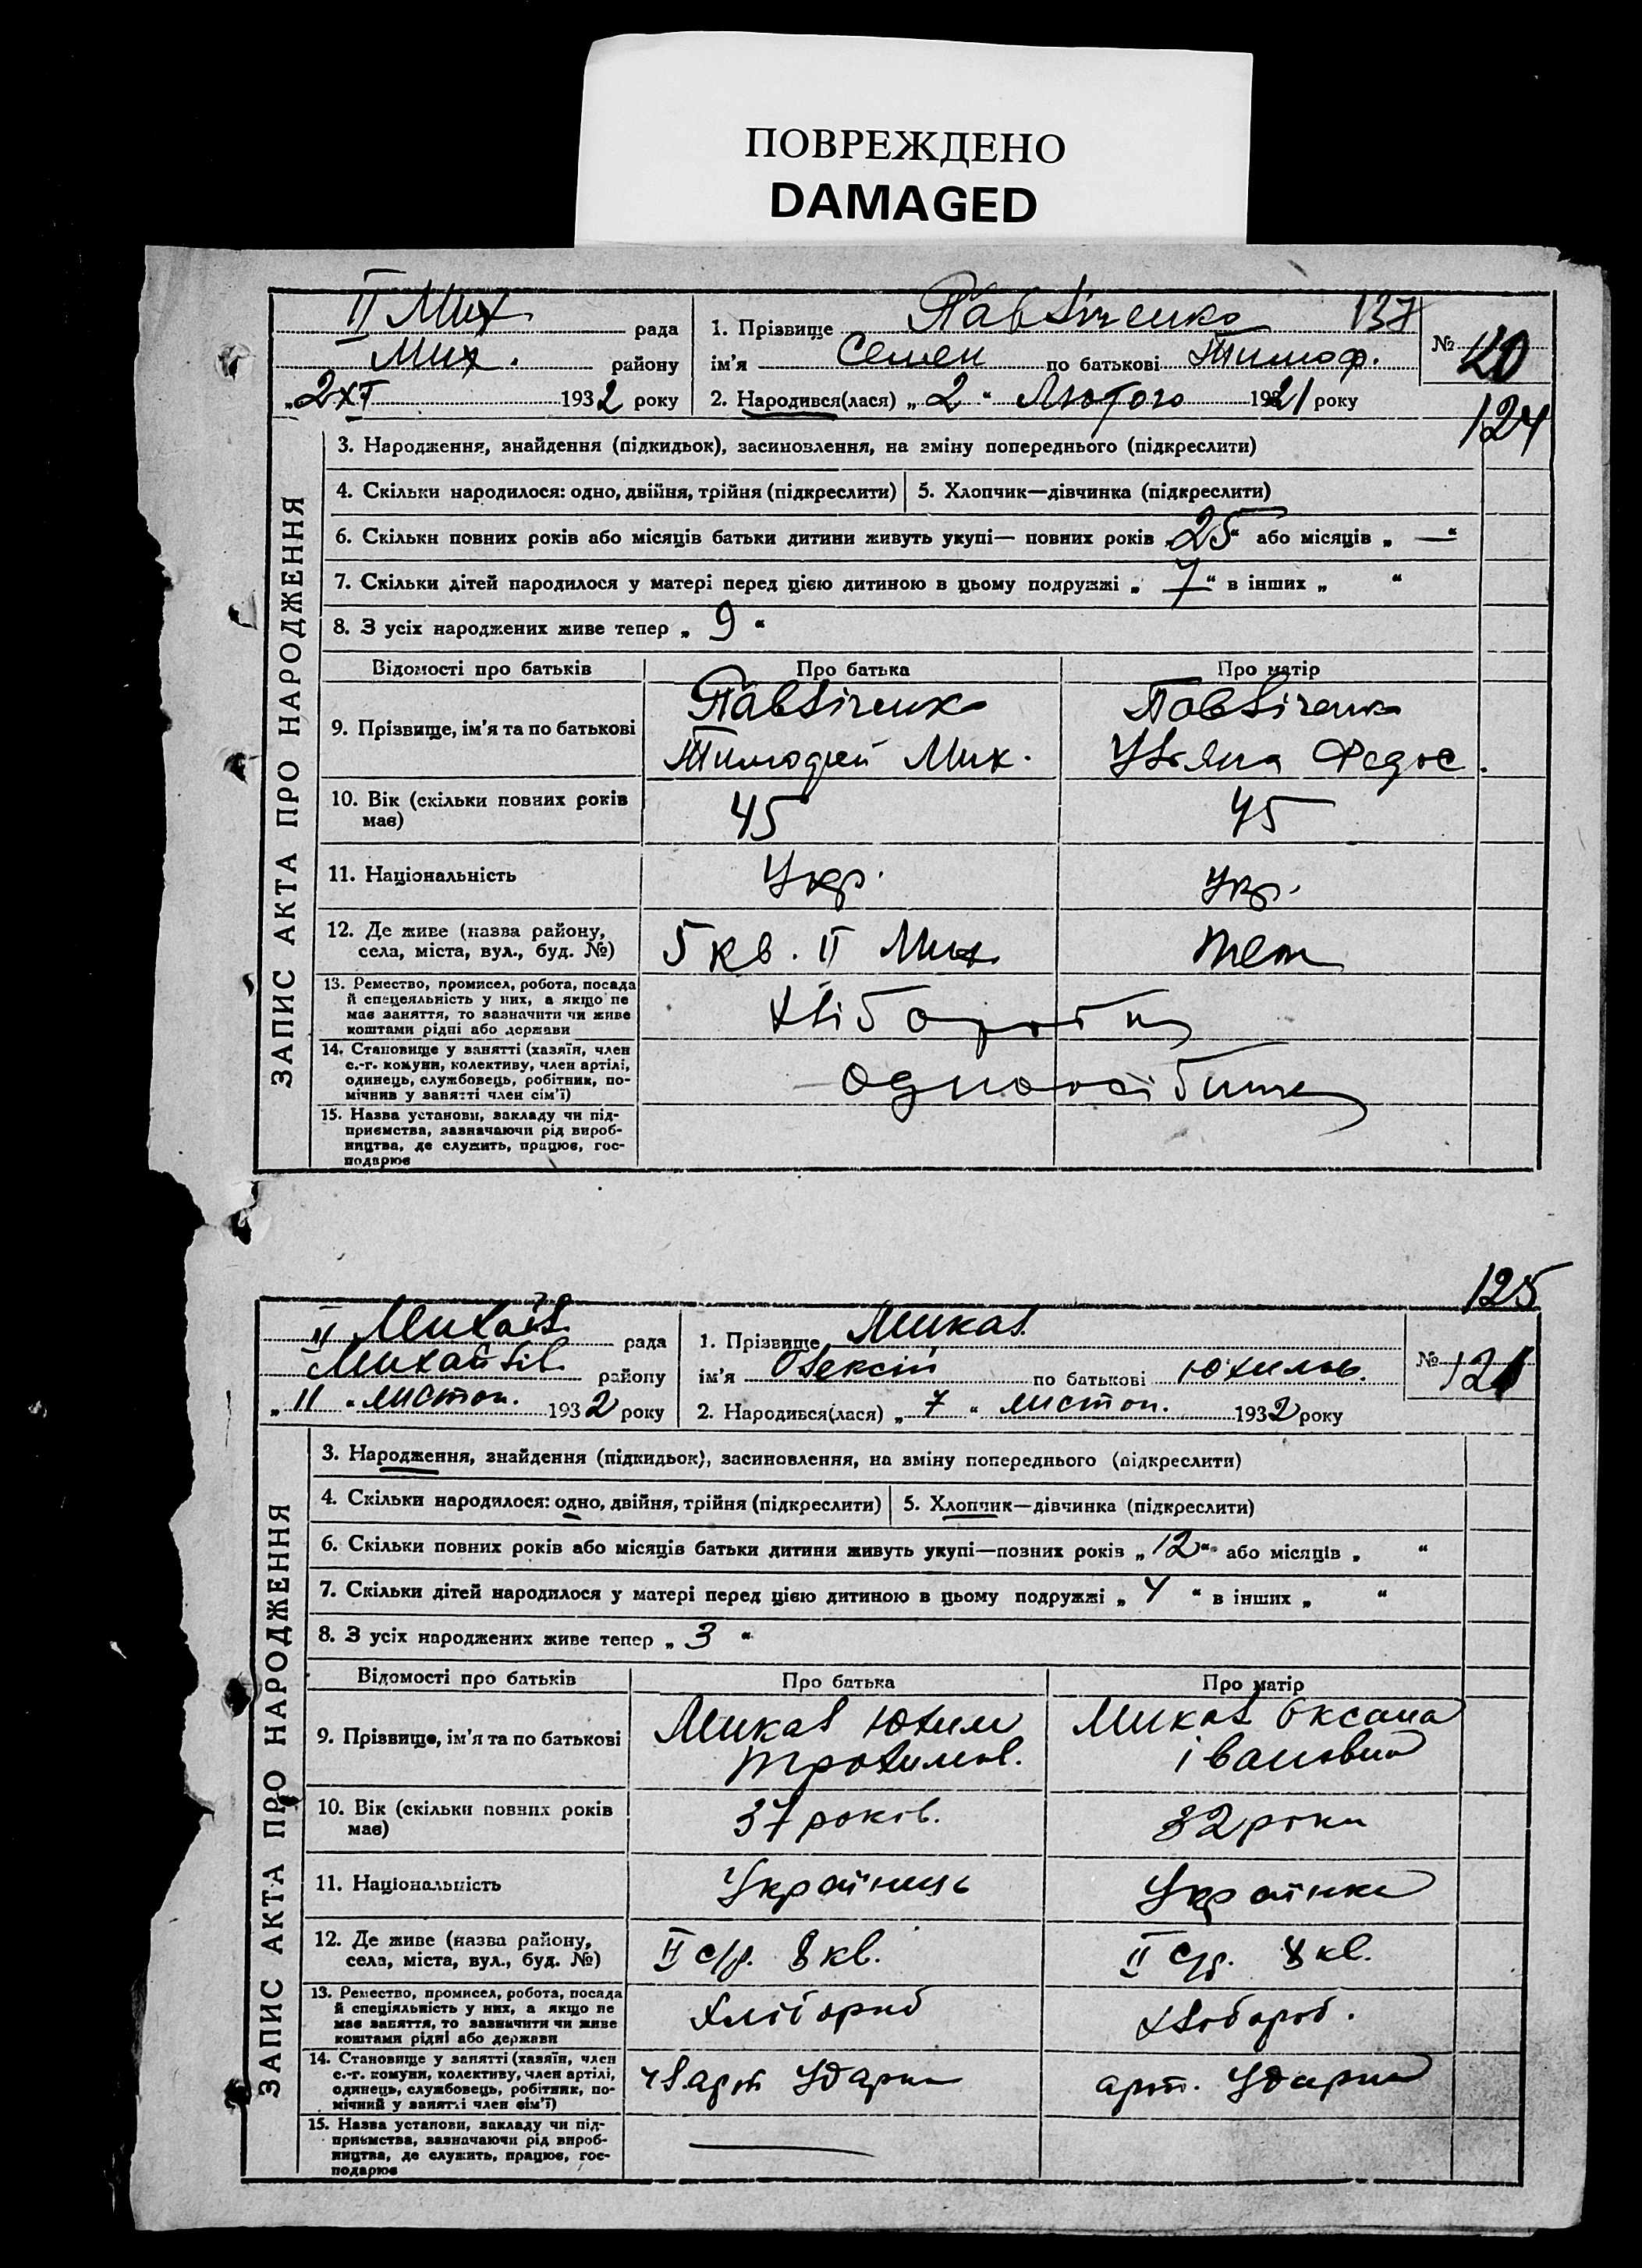 ПОВРЕЖДЕНО
DAMAGED
II Мих рада
Мих. району
„2 XI 1932 року
1. Прізвище Павліченко 137
ім’я Семен по батькові Тимоф.
2. Народився(лася) „2“ Лютого 1921 року
№ 120
124
ЗАПИС АКТА ПРО НАРОДЖЕННЯ
3. Народження, знайдення (підкидьок), засиновлення, на зміну попереднього (підкреслити)
4. Скільки народилося: одно, двійня, трійня (підкреслити) 5. Хлопчик—дівчинка (підкреслити)
6. Скільки повних років або місяців батьки дитини живуть укупі— повних років „25“ або місяців „—“
7. Скільки дітей народилося у матері перед цією дитиною в цьому подружжі „7“ в інших „ “
8. З усіх народжених живе тепер „9“
Відомості про батьків Про батька Про матір
9. Прізвище, ім’я та по батькові Павліченко Павліченко
Тимофій Мик. Уляна Федос.
10. Вік (скільки повних років має) 45 45
11. Національність Укр. Укр.
12. Де живе (назва району, села, міста, вул., буд. №) 5 кв. II Мих. теж
13. Ремество, промисел, робота, посада
й спецеяльність у них, а якщо не
має заняття, то зазначити чи живе
коштами рідні або держави
хлібороби
14. Становище у занятті (хазяїн, член
с.-г. комуни, колективу, член артілі,
одинець, службовець, робітник, по-
мічнив у занятті член сім’ї)
одноосібники
15. Назва установи, закладу чи під-
приємства, зазначаючи рід вироб-
ництва, де служить, працює, гос-
подарює
125
II Михайл рада
Михайлів. району
„11“ листоп. 1932 року
1. Прізвище Микал
ім’я Олексій по батькові Юхимов.
2. Народився(лася) „7“ листоп. 1932 року
№ 121
ЗАПИС АКТА ПРО НАРОДЖЕННЯ
3. Народження, знайдення (підкидьок), засиновлення, на зміну попереднього (підкреслити)
4. Скільки народилося: одно, двійня, трійня (підкреслити) 5. Хлопчик—дівчинка (підкреслити)
6. Скільки повних років або місяців батьки дитини живуть укупі—повних років „12“ або місяців „ “
7. Скільки дітей народилося у матері перед цією дитиною в цьому подружжі „4“ в інших „ “
8. З усіх народжених живе тепер „3“
Відомості про батьків Про батька Про матір
9. Прізвище, ім’я та по батькові Микал Юхим Микал Оксана
Трохимов. Івановна
10. Вік (скільки повних років має) 37 років. 32 роки
11. Національність Українець Українка
12. Де живе (назва району, села, міста, вул., буд. №) II с/р. 8 кв. II с/р. 8 кв.
13. Ремество, промисел, робота, посада
й спеціяльність у них, а якщо не
має заняття, то зазначити чи живе
коштами рідні або держави
Хлібороб хлібороб.
14. Становище у занятті (хазяїн, член
с.-г. комуни, колективу, член артілі,
одинець, службовець, робітник, по-
мічний у занятті член сім’ї)
чл. арт Ударник арт. Ударник
15. Назва установи, закладу чи під-
приємства, зазначаючи рід вироб-
ництва, де служить, працює, гос-
подарює